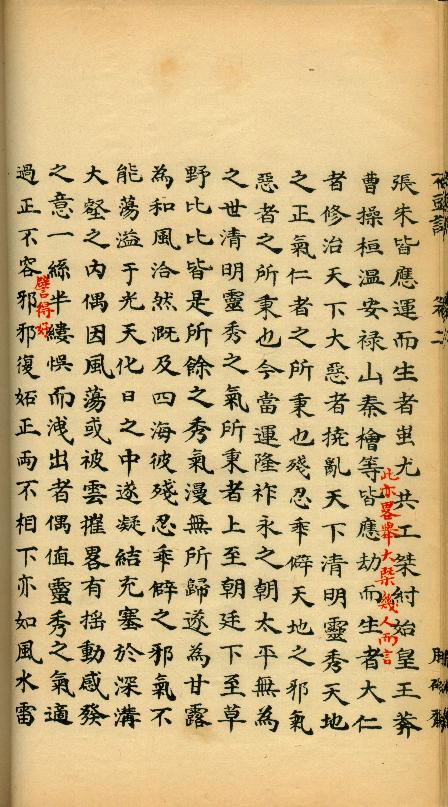 石頭記　卷二　脂硯齋
張朱皆應運而生者蚩尤共工桀紂始皇王莽
曹操桓温安禄山秦檜等皆應劫而生者大仁
此亦畧舉大槩幾人而言
者修治天下大惡者撓亂天下清明靈秀天地
之正氣仁者之所秉也殘忍乖僻天地之邪氣
惡者之所秉也今當運隆祚永之朝太平無為
之世清明靈秀之氣所秉者上至朝廷下至草
野比比皆是所餘之秀氣漫無所歸遂為甘露
為和風洽然溉及四海彼殘忍乖僻之邪氣不
能蕩溢于光天化日之中遂凝結充塞於深溝
大壑之内偶因風蕩或被雲摧畧有揺動感發
之意一絲半縷悞而洩出者偶值靈秀之氣適
過正不容邪邪復妬正両不相下亦如風水雷
譬得好